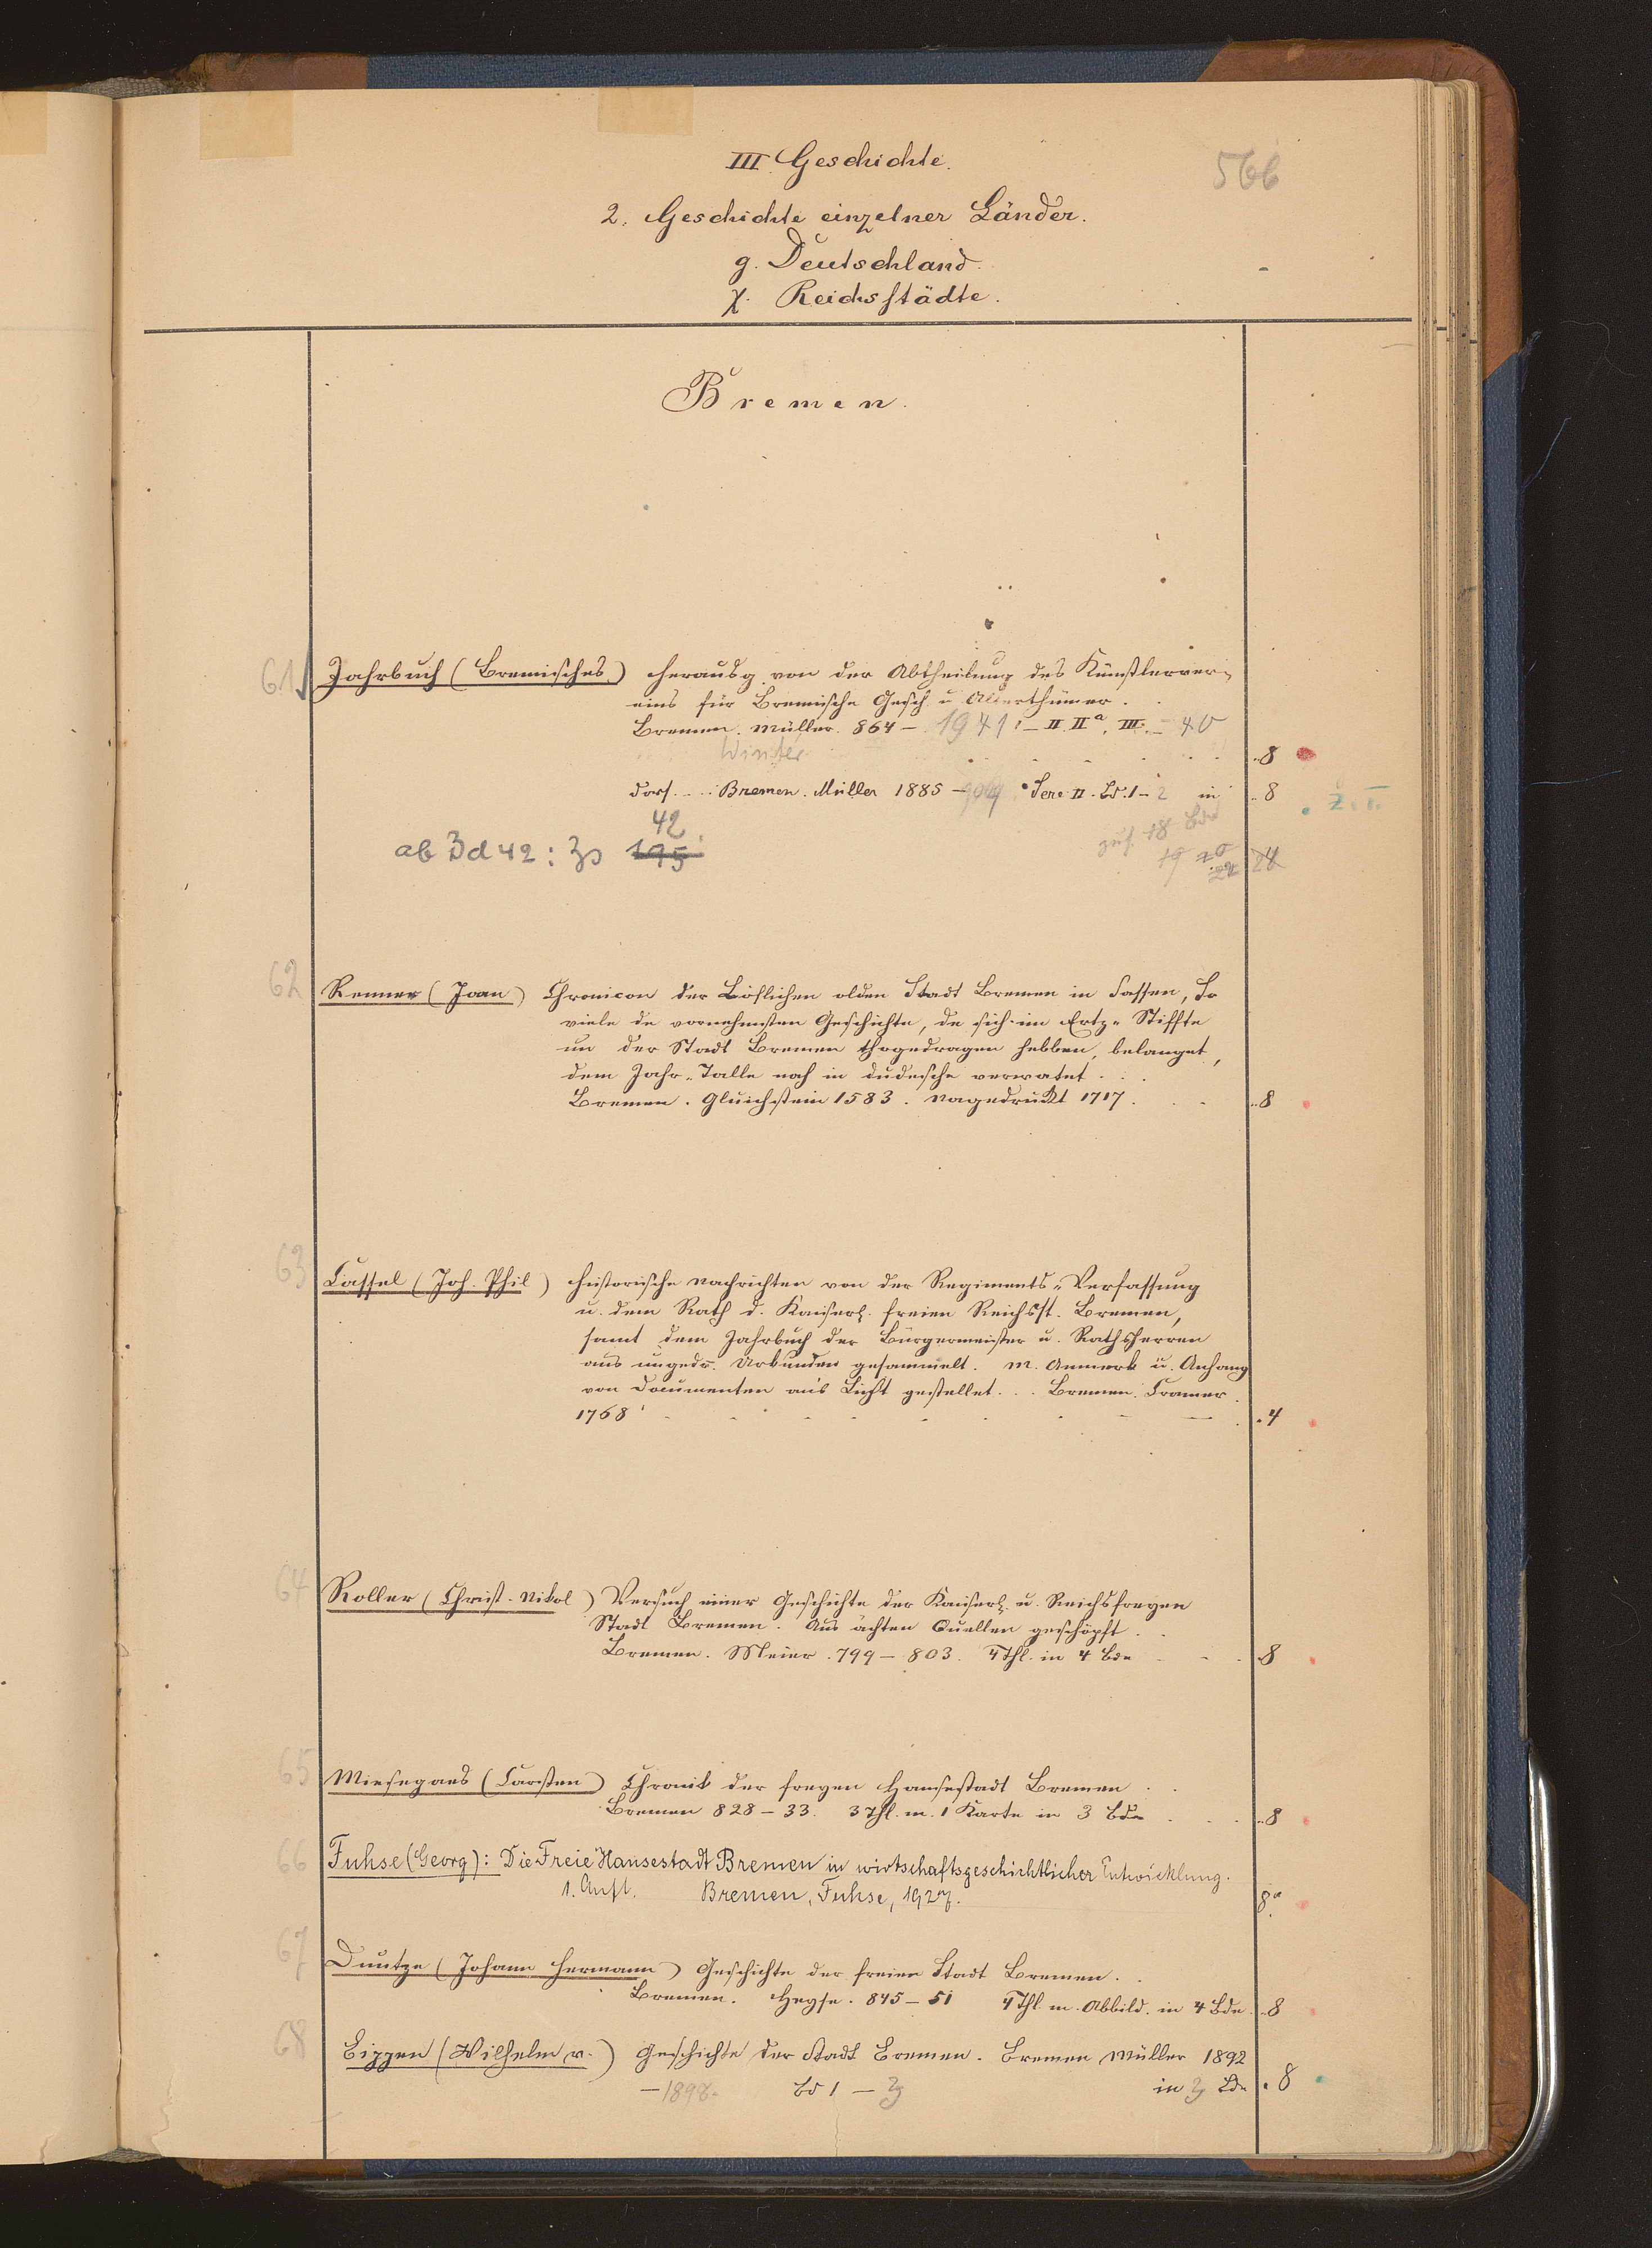 III Geschichte.
566
2. Geschichte einzelner Länder.
g. Deutschland.
χ. Reichsstädte.
Bremen.
61 Jahrbuch (Bremisches) herausg von der Abtheilung des Künstlerver-
eins für Bremische Gesch u Alterthümer.
Bremen. Müller. 864 – 1941: – II. IIa, III. – 40
Winter
8
dass. Bremen. Müller 1885 – Serie II. Bd. 1 – 2 in 8
Z. T.
42
zus. 18 Bde
ab Bd 42 : Zs 195
19 20
22 24
62 Renner (Joan) Chronicon der Löflichen olden Stadt Bremen in Sassen, So
viele de vornehmsten Geschichte, de sich im Ertz-Stiffte
un der Stadt Bremen thogedragen hebben, belanget,
dem Jahr-Talle noch in dudesche verwatet.
Bremen. Gluichstein 1583. Nagedrukt 1717. 8
63 Cassel (Joh. Phil) historische Nachrichten von der Regiments-Verfassung
u. dem Rath d. Kaiserl. freien Reichsst. Bremen,
samt dem Jahrbuch der Bürgermeister u. Rathsherren
aus ungedr. Urkunden gesammelt. m. Anmerk u. Anhang
von Documenten ans Licht gestellet. Bremen. Cramer.
1768 4
64 Roller (Christ. Nikol) Versuch einer Geschichte der Kaiserl. u. Reichsfreyen
Stadt Bremen. Aus ächten Quellen geschöpft.
Bremen. Meier. 799 – 803. 4 Thl. in 4 Bde 8
65 Miesegaes (Carsten) Chronik der freyen Hansestadt Bremen
Bremen 828 – 33. 3 Thl. m. 1 Karte in 3 Bde 8
66 Fuhse (Georg): Die Freie Hansestadt Bremen in wirtschaftsgeschichtlicher Entwicklung.
1. Aufl. Bremen, Fuhse, 1927. 8°
67 Duntze (Johann Hermann) Geschichte der freien Stadt Bremen.
Bremen. Heyse. 845 – 51 4 Thl m. Abbild. in 4 Bde. 8
68 Bippen (Wilhelm v.) Geschichte der Stadt Bremen. Bremen Müller 1892
– 1898. Bd 1 – 3 in 3 Bde 8